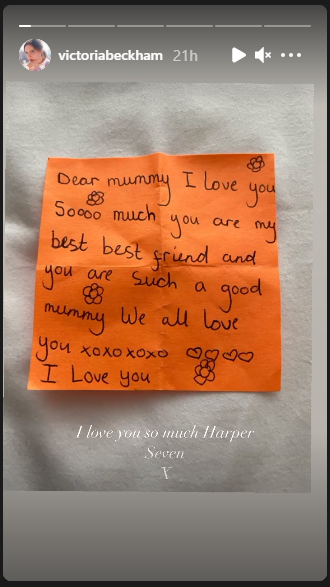 victoriabeckham 21h
Dear mummy I love you
50000 much you are my
best best friend and
you are such a good
mummy We all love
you xoxoxoxo
I Love you
I love you so much Harper
Seven
X